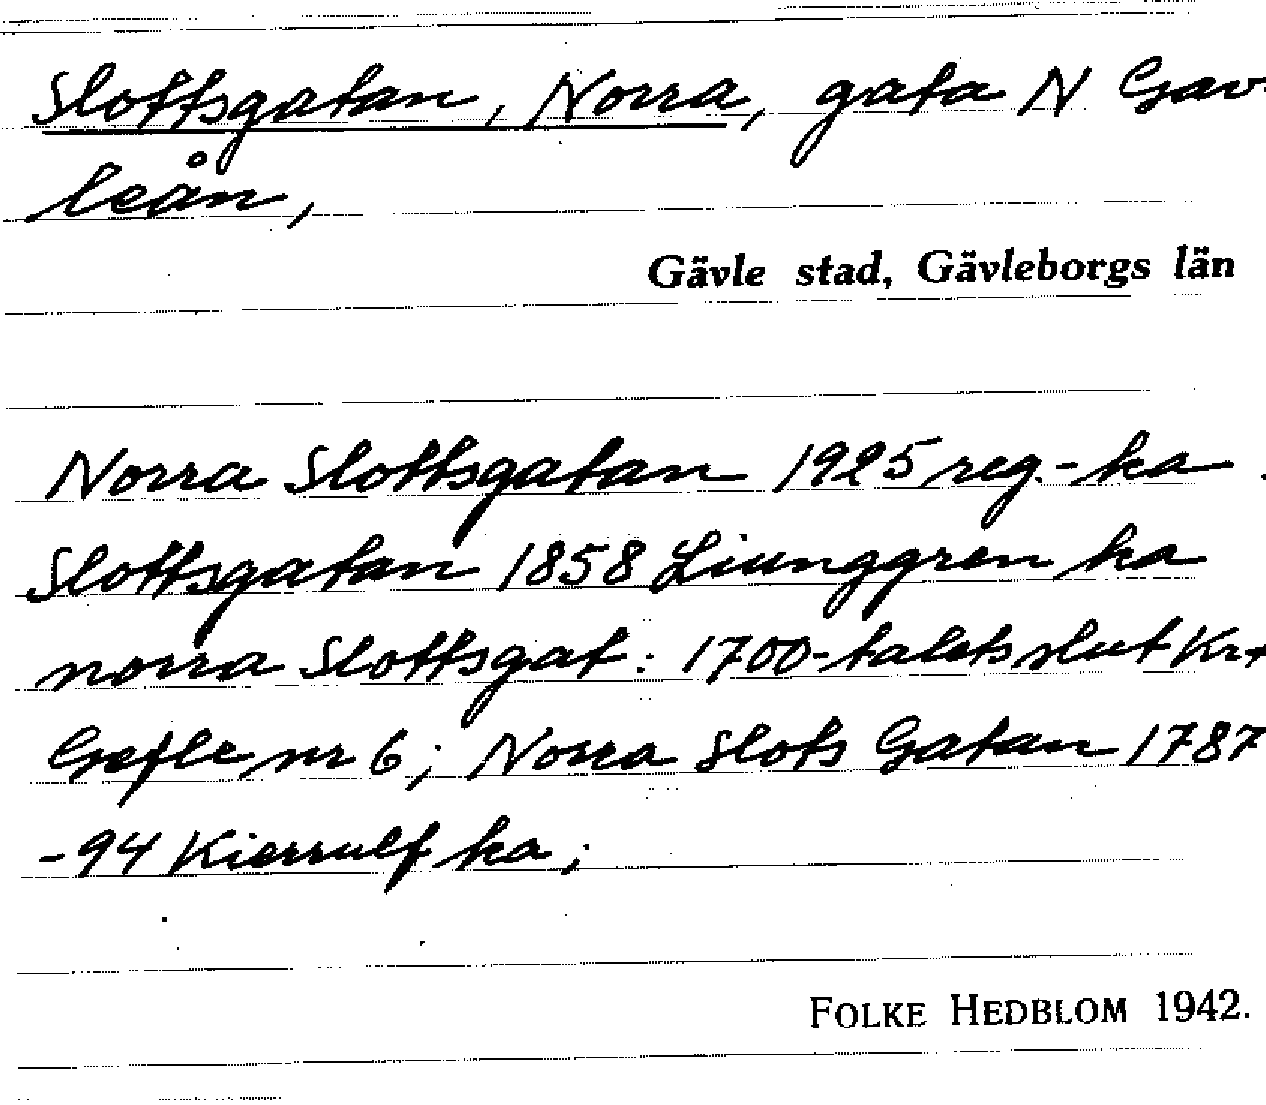 Slottsgatan, Norra, gata N Gav-
leån,
Gävle stad, Gävleborgs län
Norra Slottsgatan 1925 reg.-ka
Slottsgatan 1858 Liunggren ka
norra Slottsgat: 1700-talets slut Krt
Gefle nr 6; Norra Slots Gatan 1787
-94 Kierrulf ka;
FOLKE HEDBLOM 1942.